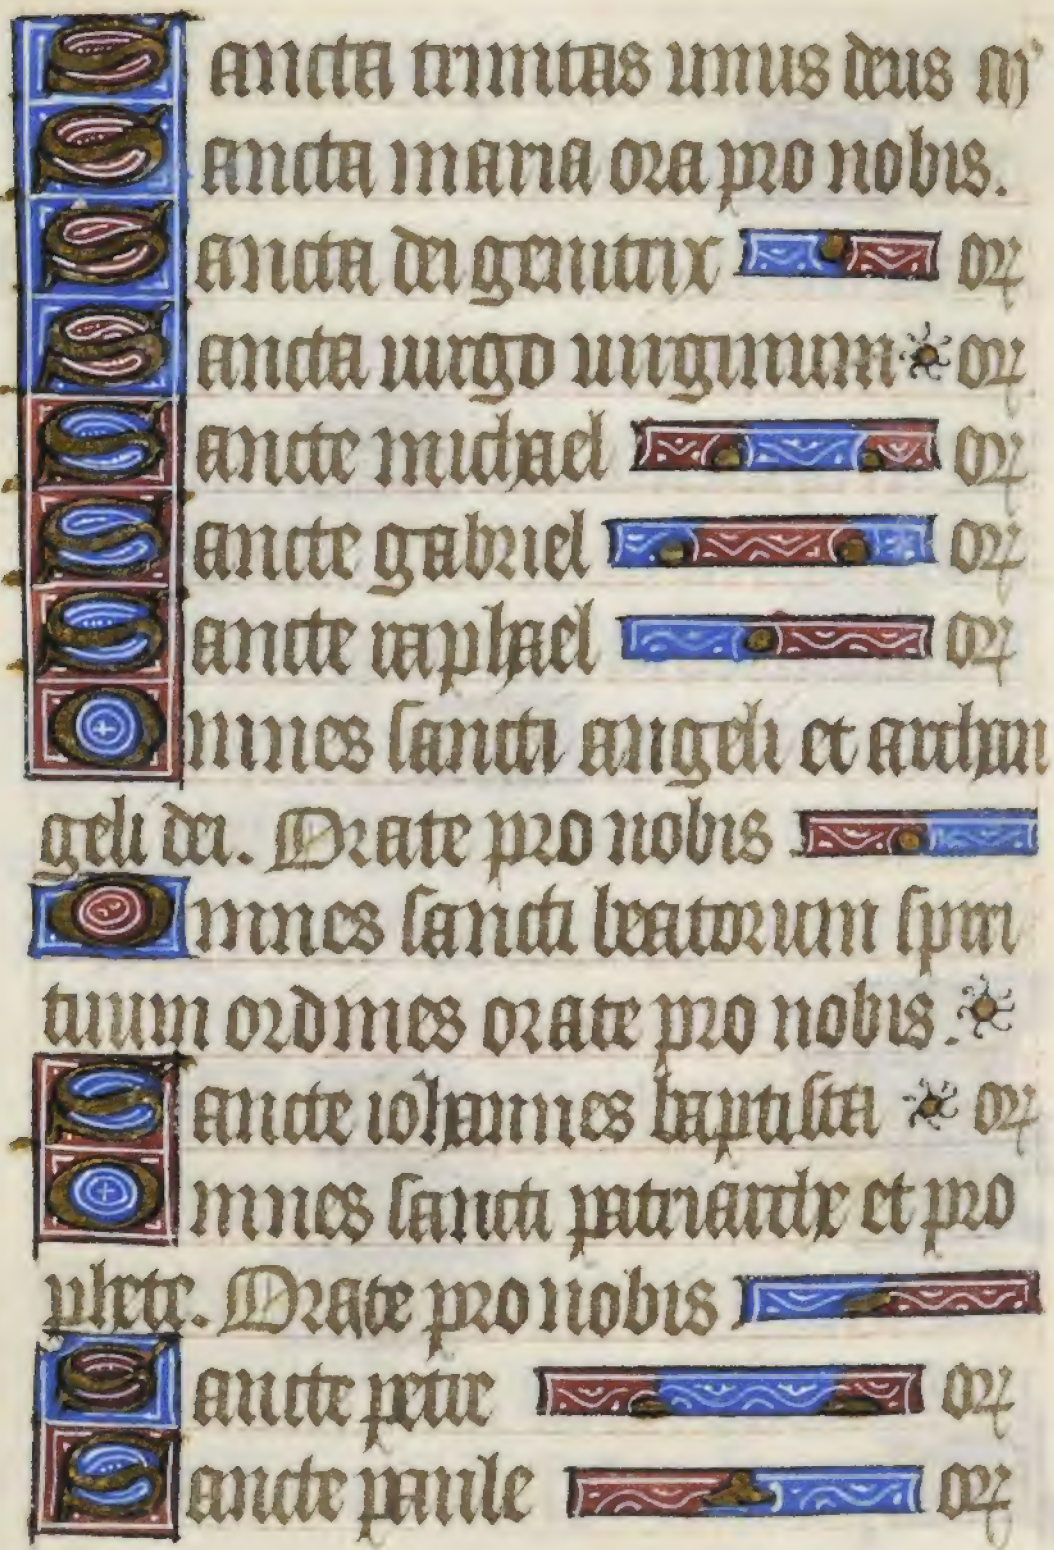 Sancta trinitas unus deus m
Sancta maria ora pro nobis.
Sancta dei genitrix or
Sancta uirgo uirginum or
Sancte michael or
Sancte gabriel or
Sancte raphael or
Omnes sancti angeli et archan
geli dei. Orate pro nobis
Omnes sancti beatorum spiri
tuum ordines orate pro nobis.
Sancte iohannes baptista or
Omnes sancti patriarche et pro
phete. Orate pro nobis
Sancte petre or
Sancte paule or